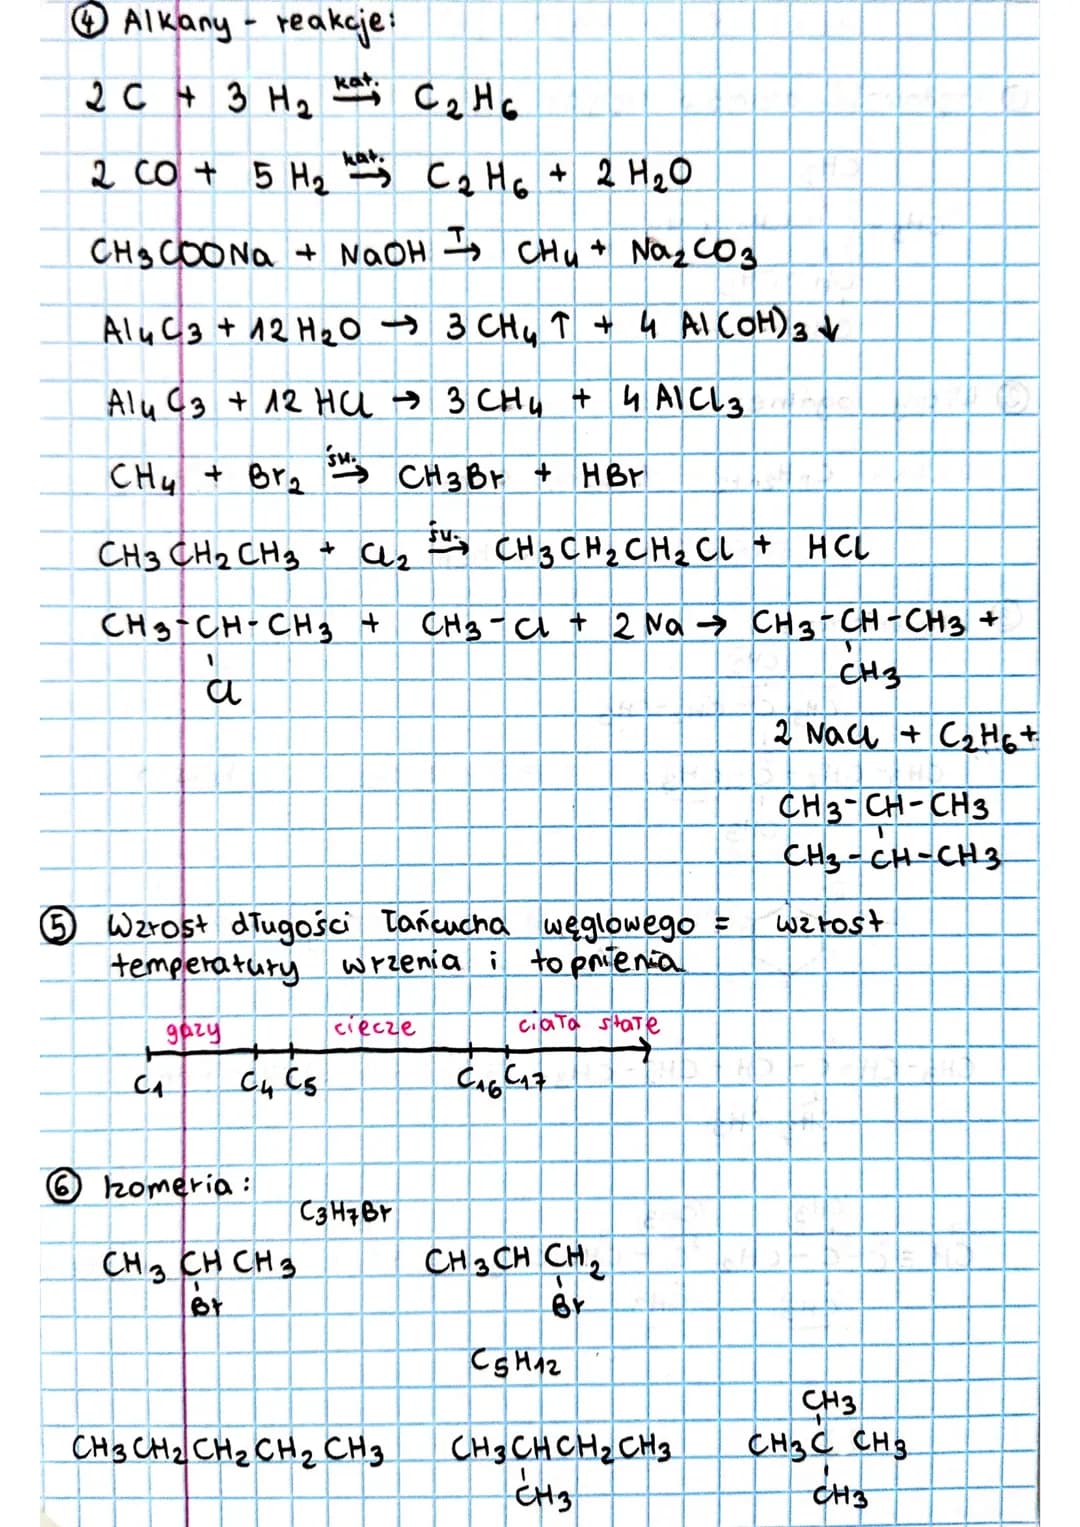 ④ Alkany - reakcje:
2 C + 3 H₂ →(kat.) C₂H₆
2 CO + 5 H₂ →(kat.) C₂H₆ + 2 H₂O
CH₃COONa + NaOH →(T) CH₄ + Na₂CO₃
Al₄C₃ + 12 H₂O → 3 CH₄ ↑ + 4 Al(OH)₃ ↓
Al₄C₃ + 12 HCl → 3 CH₄ + 4 AlCl₃
CH₄ + Br₂ →(św.) CH₃Br + HBr
CH₃CH₂CH₃ + Cl₂ →(św.) CH₃CH₂CH₂Cl + HCl
CH₃-CH-CH₃ + CH₃-Cl + 2 Na → CH₃-CH-CH₃ +
Cl CH₃
2 NaCl + C₂H₆ +
CH₃-CH-CH₃
CH₃-CH-CH₃
⑤ Wzrost długości łańcucha węglowego = wzrost
temperatury wrzenia i topnienia
gazy ciecze ciała stałe
C₁ C₄ C₅ C₁₆ C₁₇
⑥ Izomeria:
C₃H₇Br
CH₃ CH CH₃ CH₃ CH CH₂
Br Br
C₅H₁₂
CH₃
CH₃CH₂CH₂CH₂CH₃ CH₃CHCH₂CH₃ CH₃C CH₃
CH₃ CH₃